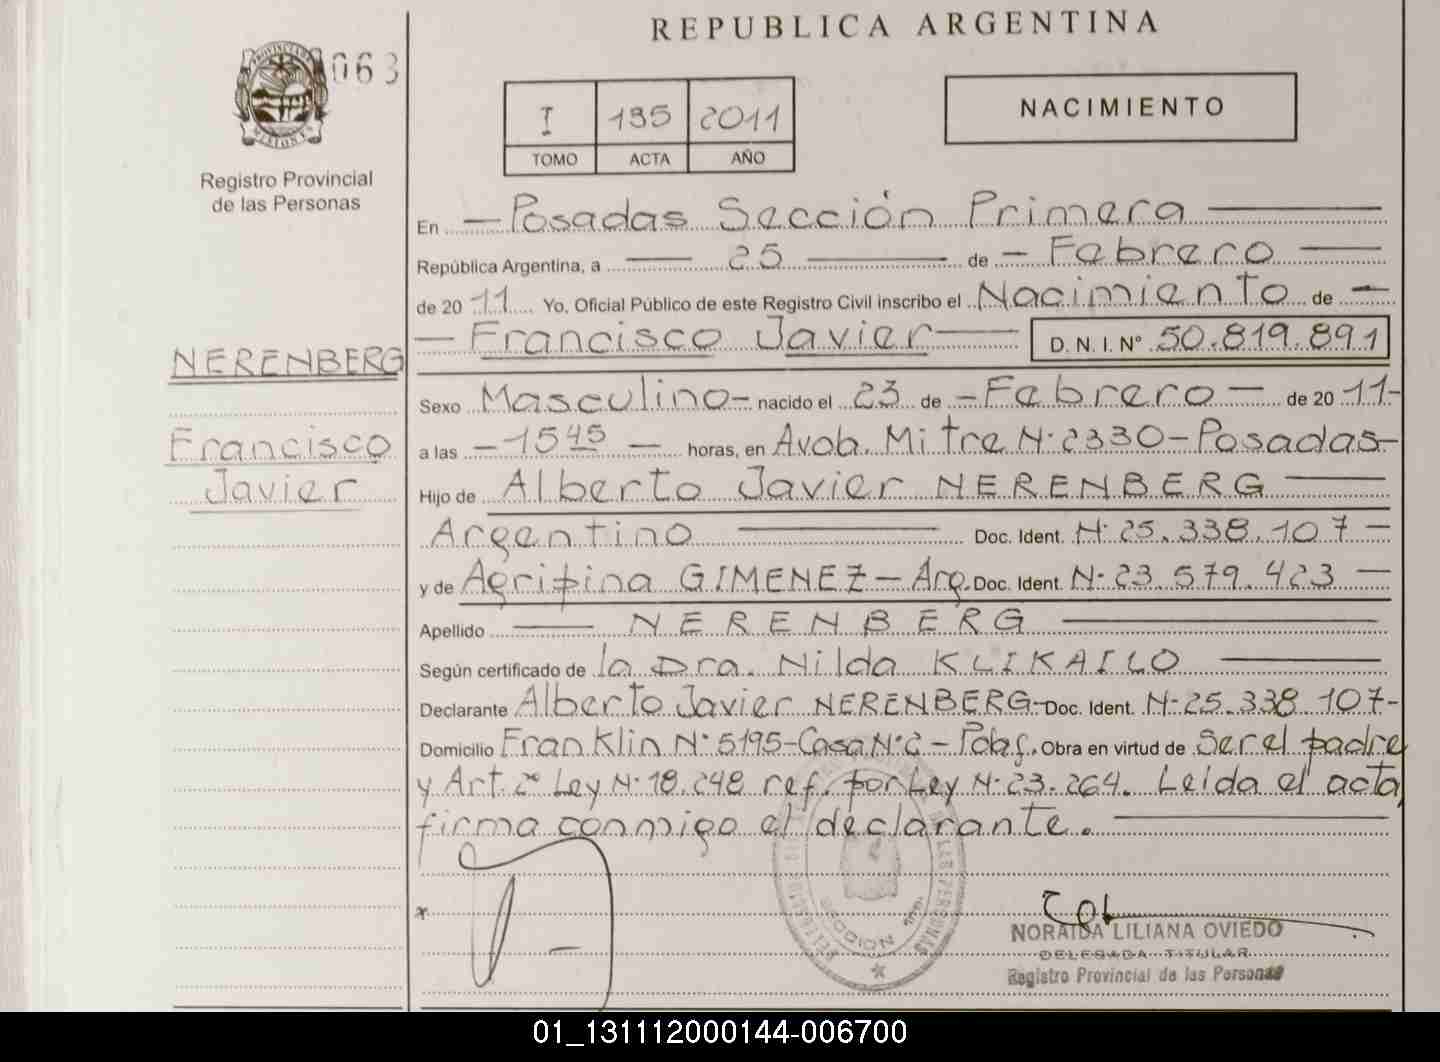 REPUBLICA ARGENTINA
063
I 195 2011
TOMO ACTA AÑO
NACIMIENTO
Registro Provincial
de las Personas
En — Posadas Sección Primera —
República Argentina, a — 25 — de — Febrero —
de 20 11 Yo, Oficial Público de este Registro Civil inscribo el Nacimiento de —
— Francisco Javier — D. N. I. Nº 50.819.891
NERENBERG
Francisco
Javier
Sexo Masculino — nacido el 23 de — Febrero — de 20 11 -
a las — 15 45 — horas, en Avda. Mitre N° 2330 - Posadas -
Hijo de Alberto Javier NERENBERG —
Argentino — Doc. Ident. N° 25.338.107 —
y de Agripina GIMENEZ — Arg. Doc. Ident. N° 23.579.423 —
Apellido — NERENBERG —
Según certificado de la Dra. Nilda KLIKAILO —
Declarante Alberto Javier NERENBERG - Doc. Ident. N° 25.338.107 -
Domicilio Franklin N° 5195 - Casa N° 2 - Pdas. Obra en virtud de Ser el padre
y Art. 2° Ley N° 18.248 ref. por Ley N° 23.264. Leída el acta,
firma conmigo el declarante. —
SECCION
NORAIDA LILIANA OVIEDO
DELEGADA TITULAR
Registro Provincial de las Personas
01_131112000144-006700